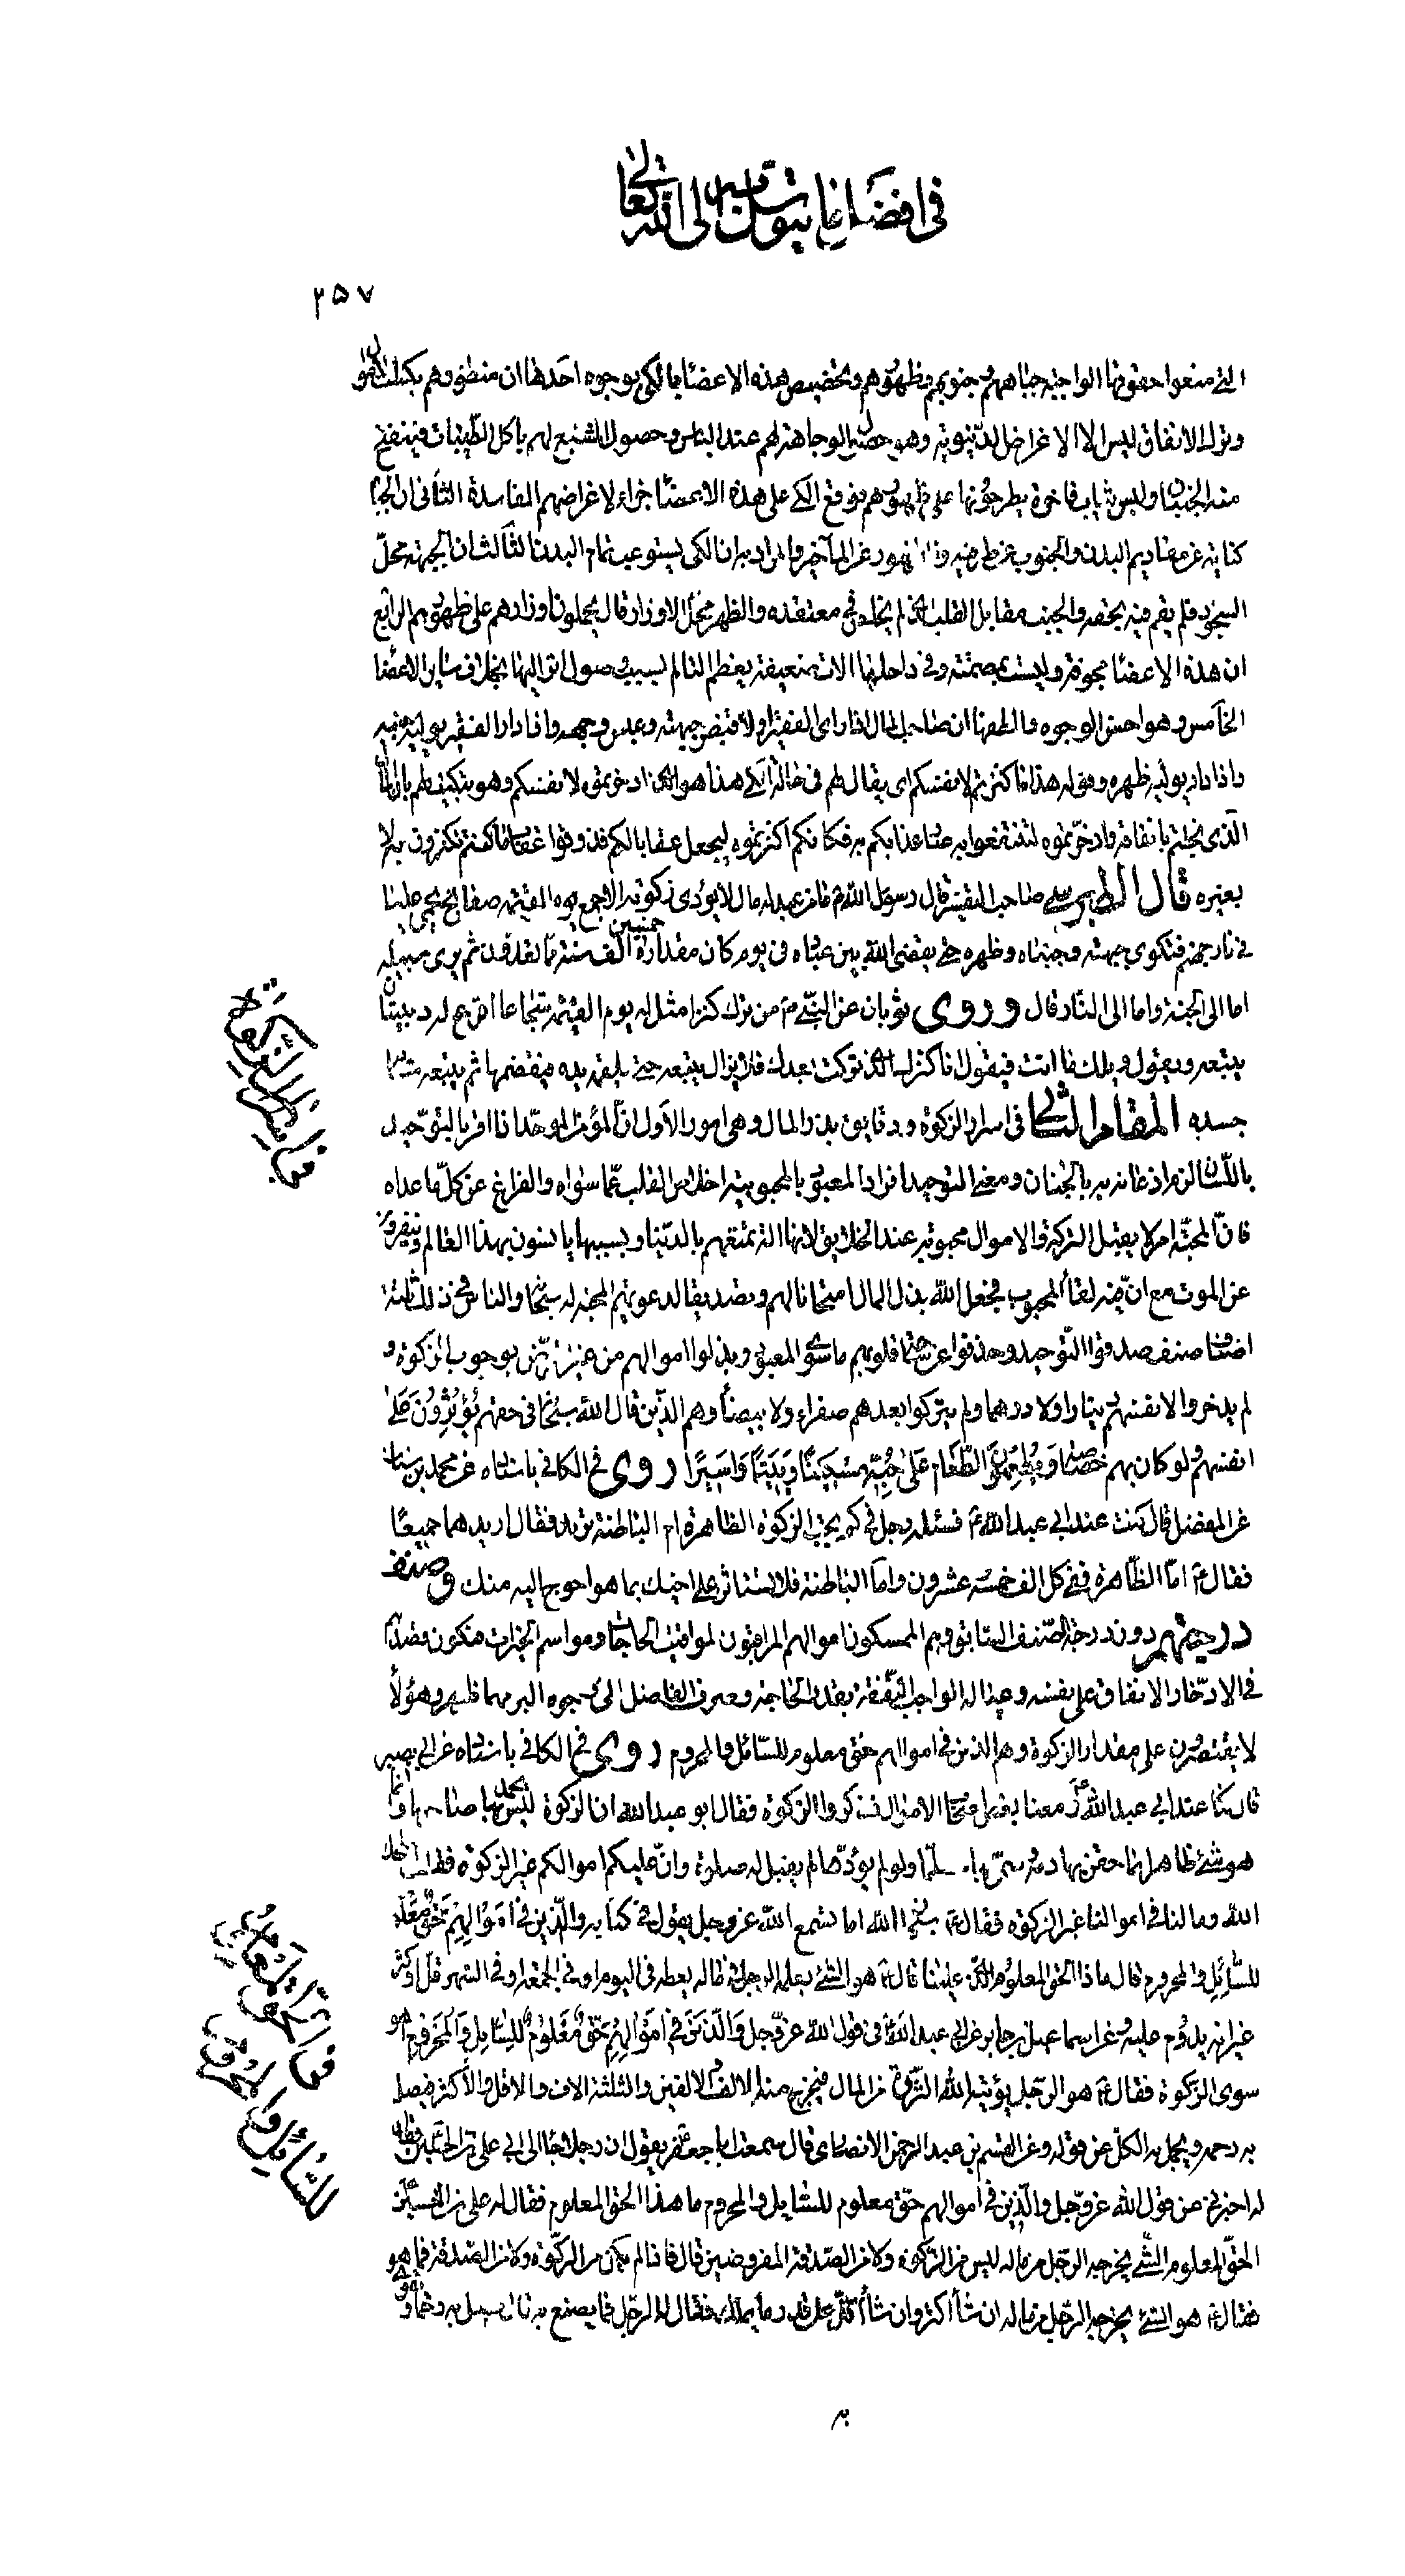 في افضل ما يتوسل به الى الله تعالى
٢٥٧
التي منعوا حقوقها الواجبة جباههم وجنوبهم وظهورهم وتخصيص هذه الاعضاء بالكي بوجوه احدها ان منظورهم بكسب الاموال
وترك الانفاق ليس الا الاغراض الدنيوية وهو حصول الوجاهة لهم عند الناس وحصول الشبع لهم باكل الطيبات فينتفخ
منه الجنبان ولبس ثياب فاخرة يطرحونها على ظهورهم فوقع الكي على هذه الاعضاء جزاء لاغراضهم الفاسدة الثاني ان الجباه
كناية عن مقاديم البدن والجنوب عن طرفيه والظهور عن المآخير والمراد به ان الكي يستوعب تمام البدن الثالث ان الجبهة محل
السجود فلم يقم فيه بحقه والجنب مقابل القلب الذي لم يخلص في معتقده والظهر محل الاوزار قال يحملون اوزارهم على ظهورهم الرابع
ان هذه الاعضاء مجوفة وليست بمصمتة وفي داخلها الات ضعيفة يعظم التالم بسبب وصول اثر اليها بخلاف ساير الاعضا
الخامس وهو احسن الوجوه والطفها ان صاحب المال اذا راى الفقير اولا قبض جبهته وعبس وجهه واذا دار الفقير يوليه جنبه
واذا دار يوليه ظهره وقوله هذا ما كنزتم لانفسكم اي يقال لهم في حالة الكي هذا هو الذي ادخرتموه لانفسكم وهو تبكيت لهم بالمال
الذي بخلتم بانفاقه وادخرتموه لتنتفعوا به صار عذابكم به فكانكم اكنزتموه ليجعل عقابا لكم فذوقوا عقاب ما كنتم تكنزون به لا
بغيره قال الطبرسي صاحب التفسير قال رسول الله ص ما من عبد له مال لا يؤدى زكوته الا جمع يوم القيمة صفايح يحمى عليها
في نار جهنم فتكوى جبهته وجنباه وظهره حتى يقضي الله بين عباده في يوم كان مقداره خمسين الف سنة مما تعدون ثم يرى سبيله
اما الى الجنة واما الى النار قال وروى ثوبان عن النبي ص من ترك كنزا مثل له يوم القيمة شجاعا اقرع له زبيبتان
يتبعه ويقول ويلك ما انت فيقول انا كنزك الذي تركت بعدك فلا يزال يتبعه حتى يلقمه يده فيقضمها ثم يتبعه سائر
جسده المقام الثاني في اسرار الزكوة ودقايق بذل المال وهي امور الاول ان المؤمن الموحد لما اقر بالتوحيد
باللسان لزم اذعانه به بالجنان ومعنى التوحيد افراد المعبود بالمحبوبية اخلاص القلب عما سواه والفراغ عن كل ما عداه
فان المحبة امر لا يقبل الشركة والاموال محبوبة عند الخلايق لانها الة تمتعهم بالدنيا وبسببها يانسون بهذا العالم وينفرون
عن الموت مع ان فيه لقاء المحبوب فجعل الله بذل المال امتحانا لهم وتصديقا لدعويهم المحبة له سبحانه والناس في ذلك ثلثة
اصناف صنف صدقوا التوحيد وحذفوا عن صفحة قلوبهم ما سوى المعبود وبذلوا اموالهم من غير تربص بوجوب الزكوة و
لم يدخروا لانفسهم دينارا ولا درهما ولم يتركوا بعدهم صفراء ولا بيضاء وهم الذين قال الله سبحانه في حقهم يُؤْثِرُونَ عَلىٰ
انفسهم ولو كان بهم خصاصة ويطعمون الطعام على حبه مسكينا ويتيما واسيرا روى في الكافي باسناده عن محمد بن سنان
عن المفضل قال كنت عند ابي عبد الله ع فسئله رجل في كم يجب الزكوة الظاهرة ام الباطنة تريد فقال اريدهما جميعا
فقال ع اما الظاهرة ففي كل الف خمسة عشرون واما الباطنة فلا تستاثر على اخيك بما هو احوج اليه منك وصنف
درجتهم دون درجة الصنف السابق وهم الممسكون اموالهم المراقبون لمواقيت الحاجات ومواسم الخيرات فيكون قصدهم
في الادخار الانفاق على نفسه وعياله الواجبي النفقة بقدر الحاجة وصرف الفاضل الى وجوه البر مهما ظهر وهؤلاء
لا يقتصرون على مقدار الزكوة وهم الذين في اموالهم حق معلوم للسائل والمحروم روى في الكافي باسناده عن ابي بصير
قال كنا عند ابي عبد الله ع ومعنا بعض اصحاب الاموال فذكروا الزكوة فقال ابو عبد الله ان الزكوة ليس يحمد بها صاحبها وانما
هو شئ ظاهر انما حقن بها دمه وسمي بها مسلما ولو لم يؤدها لم يقبل له صلوة وان عليكم في اموالكم غير الزكوة فقلت اصلحك
الله وما لنا في اموالنا غير الزكوة فقال ع سبحان الله اما تسمع الله عز وجل يقول في كتابه والذين في اموالهم حق معلوم
للسائل والمحروم قال ماذا الحق المعلوم الذي علينا قال ع هو الشئ يعمله الرجل في ماله يعطيه في اليوم او في الجمعة او في الشهر قل او كثر
غير انه يدوم عليه وعن اسماعيل بن جابر عن ابي عبد الله ع في قول الله عز وجل وَالَّذينَ في اَمْوالِهِمْ حَقٌّ مَعْلُومٌ لِلسّائِلِ وَالْمَحْرُومِ اهو
سوى الزكوة فقال ع هو الرجل يؤتيه الله الثروة من المال فيخرج منه الالف والالفين والثلثة الاف والاقل والاكثر فيصل
به رحمه ويحمل به الكل عن قومه وعن القسم بن عبد الرحمن الانصاري قال سمعت ابا جعفر ع يقول ان رجلا جاء الى ابي علي بن الحسين فقال
له اخبرني عن قول الله عز وجل والذين في اموالهم حق معلوم للسايل والمحروم ما هذا الحق المعلوم فقال له علي بن الحسين
الحق المعلوم الشئ يخرجه الرجل من ماله ليس من الزكوة ولا من الصدقة المفروضتين قال فاذا لم يكن من الزكوة ولا من الصدقة فما هو
فقال ع هو الشئ يخرجه الرجل من ماله ان شاء اكثر وان شاء اقل على قدر ما يملك فقال له الرجل فما يصنع به قال يصل به رحما و
به
في اسرار الزكوة
في الحق المعلوم
للسائل والمحروم